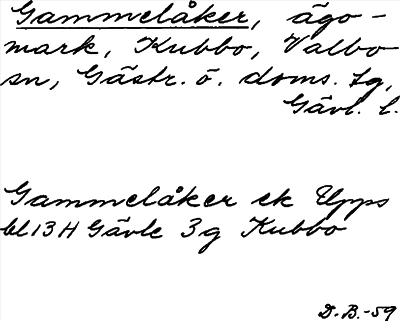 Gammelåker, ägo-
mark, Kubbo, Valbo
sn, Gästr. ö. doms. tg,
Gävl. l.
Gammelåker ek Upps
bl 13 H Gävle 3g Kubbo
D.B.-59